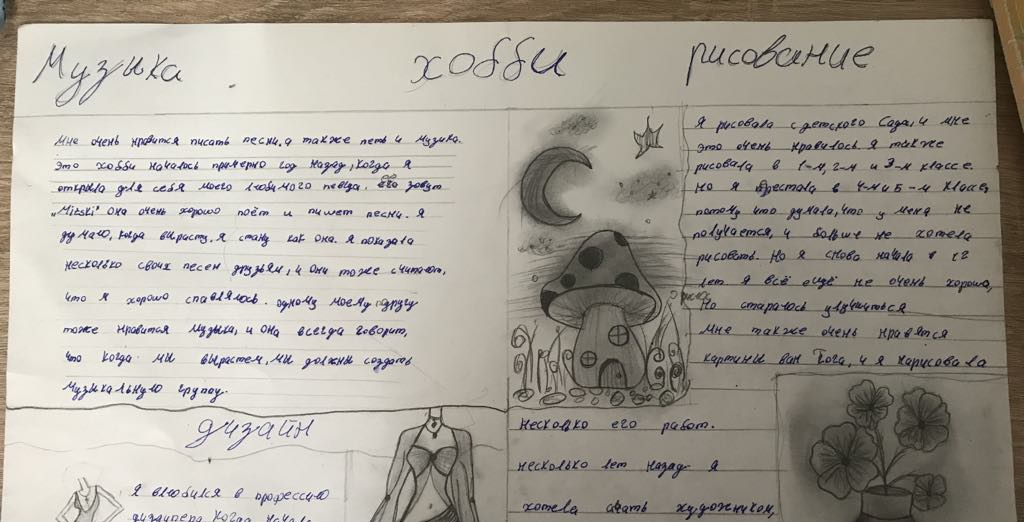 Музыка
хобби
рисование
Мне очень нравится писать песни, а также петь и музика.
Это хобби началось примерно год назад, когда я
открыла для себя моего любимого певца. его зовут
„Mitski" она очень хорошо поёт и пишет песни. Я
думаю, когда вырасту, я стану как она. Я показала
несколько своих песен друзьям, и они тоже считают,
что я хорошо справляюсь. одному моему другу
тоже нравится музыка, и она всегда говорит,
что когда мы вырастем, мы должны создать
музыкальную группу.
Я рисовала с детского сада, и мне
это очень нравилось. я также
рисовала в 1-м, 2-м и 3-м классе.
Но я перестала в 4-м и 5-м классе,
потому что думала, что у меня не
получается, и больше не хотела
рисовать. Но я снова начала в 12
лет. Я всё ещё не очень хороша,
Но стараюсь улучшиться
Мне также очень нравятся
картины ван Гога, и я нарисовала
несколько его работ.
несколько лет назад я
хотела стать художником,
дизайн
Я влюбился в профессию
дизайнера когда начала